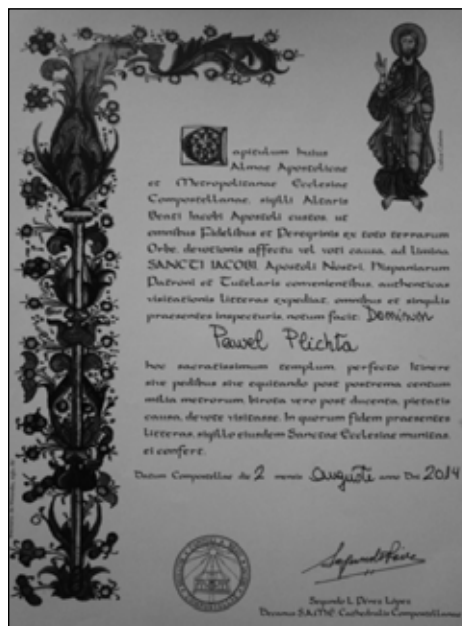 Capitulum huius
Almae Apostolicae
et Metropolitanae Ecclesiae
Compostellanae, sigilli Altaris
Beati Iacobi Apostoli custos, ut
omnibus Fidelibus et Peregrinis ex toto terrarum
Orbe, devotionis affectu vel voti causa, ad limina
SANCTI IACOBI, Apostoli Nostri, Hispaniarum
Patroni et Tutelaris convenientibus, authenticas
visitationis litteras expediat, omnibus et singulis
praesentes inspecturis, notum facit: Dominum
Pawel Plichta
hoc sacratissimum templum, perfecto Itinere
sive pedibus sive equitando post postrema centum
milia metrorum, birota vero post ducenta, pietatis
causa, devote visitasse. In quorum fidem praesentes
litteras, sigillo eiusdem Sanctae Ecclesiae munitas,
ei confert.
Datum Compostellae die 2 mensis Augusti anno Dni 2014
Segundo L. Pérez López
Decanus S.A.M.E. Cathedralis Compostellanae